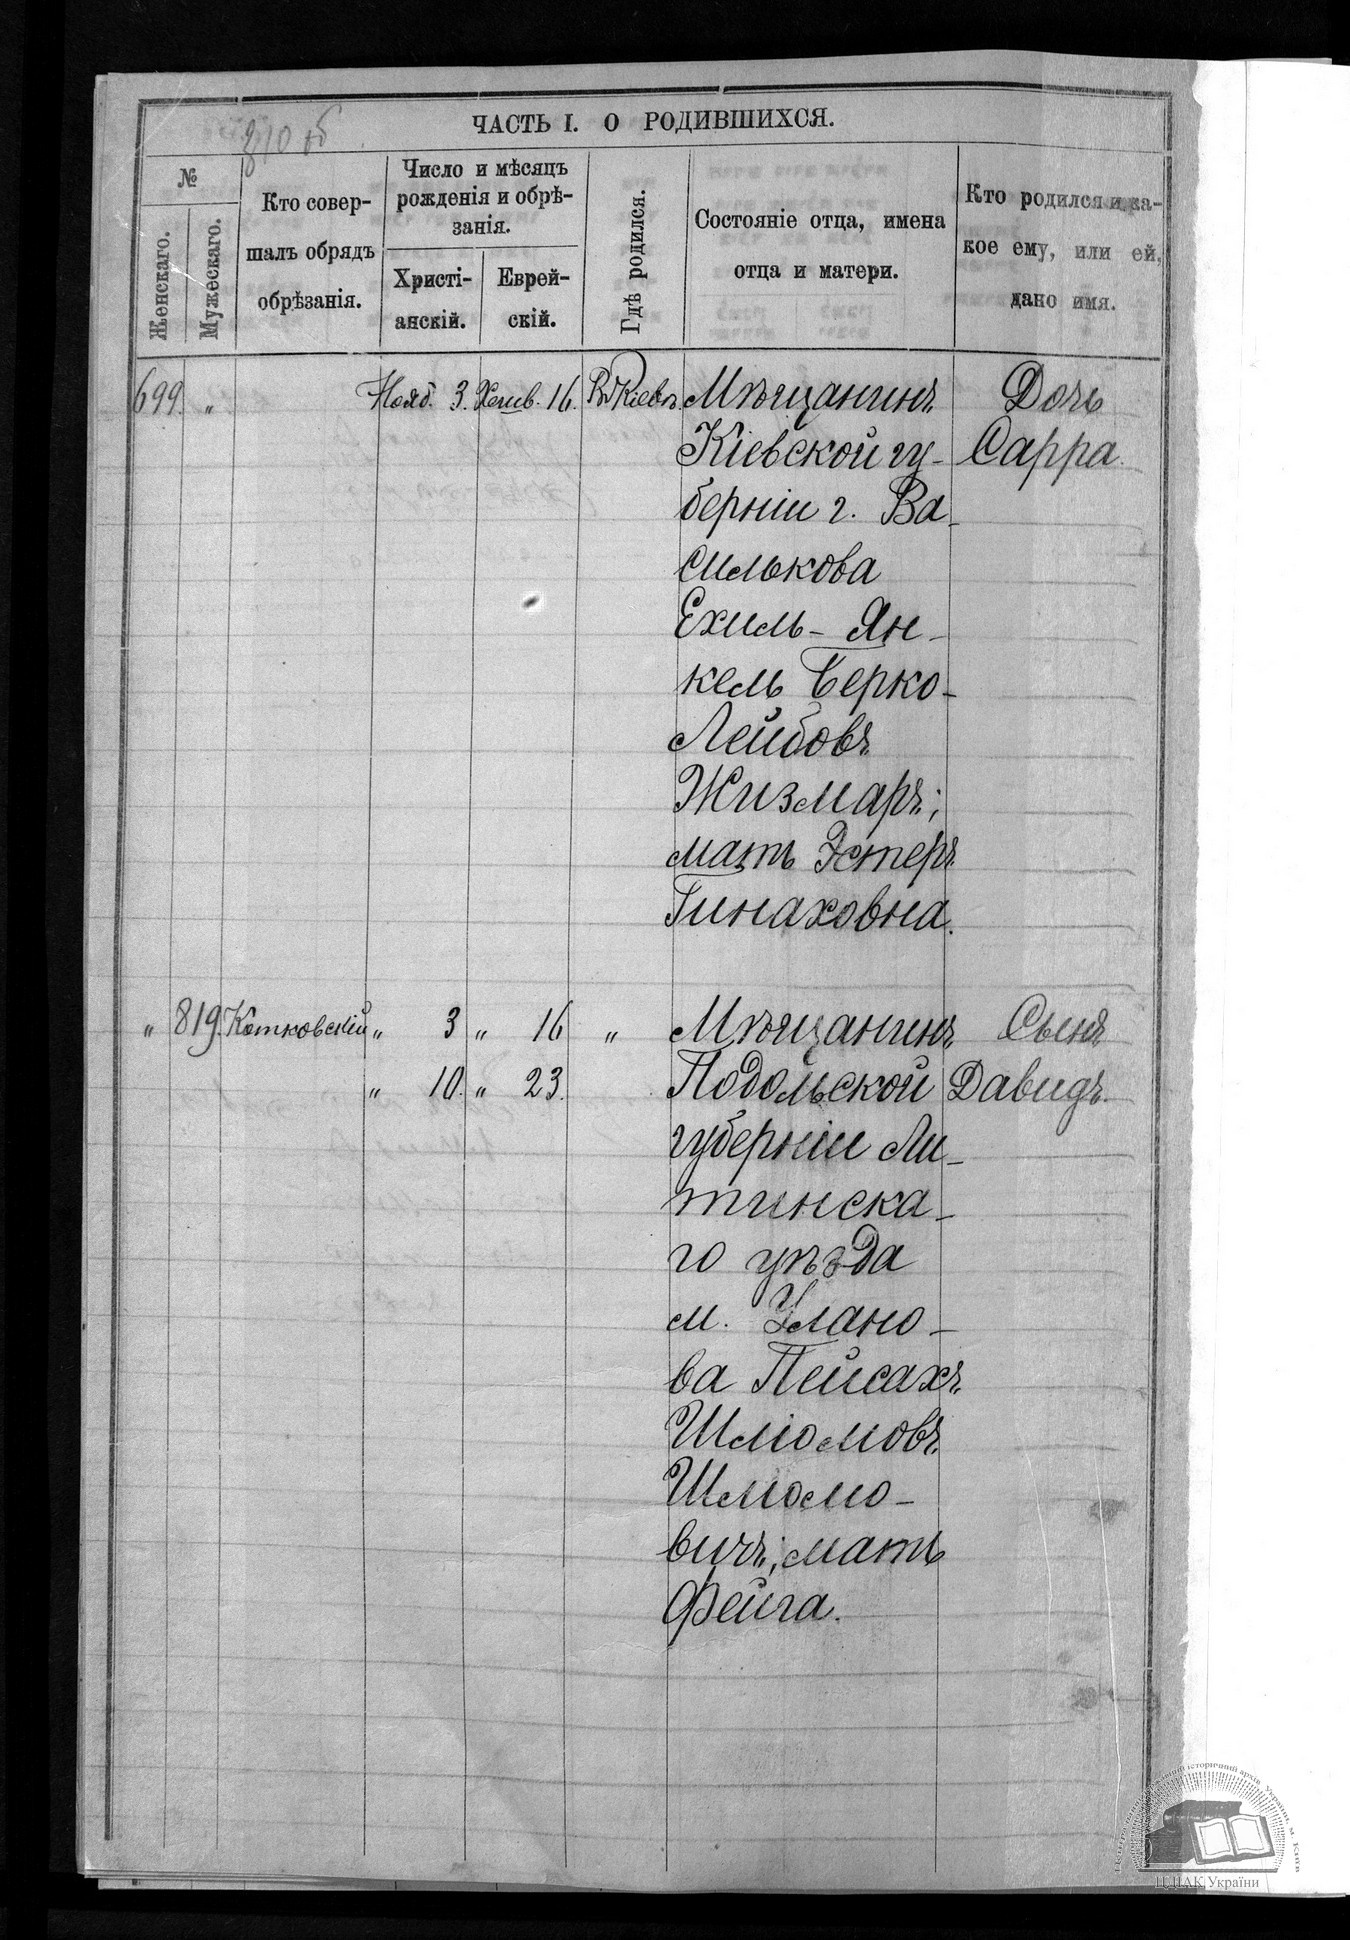 ЧАСТЬ I. О РОДИВШИХСЯ.
810 об
№
Женскаго.
Мужескаго.
Кто совер-
шалъ обрядъ
обрѣзанія.
Число и мѣсяцъ
рожденія и обрѣ-
занія.
Христі-
анскій.
Еврей-
скій.
Гдѣ родился.
Состояніе отца, имена
отца и матери.
Кто родился и ка-
кое ему, или ей,
дано имя.
699. „ Нояб. 3. Хешв. 16. Въ Кіевѣ. Мѣщанинъ Дочь
Кіевской гу- Сарра.
берніи г. Ва-
силькова
Ехиль-Ян-
кель Берко-
Лейбовъ
Жизмаръ;
мать Эстеръ
Гинаховна.
„ 819. Котковскій „ 3 „ 16 „ Мѣщанинъ Сынъ
„ 10. „ 23. Подольской Давидъ.
губерніи Ли-
тинска-
го уѣзда
м. Улано-
ва Пейсахъ
Шліомовъ
Шліомо-
вичъ; мать
Фейга.
ЦДІАК України